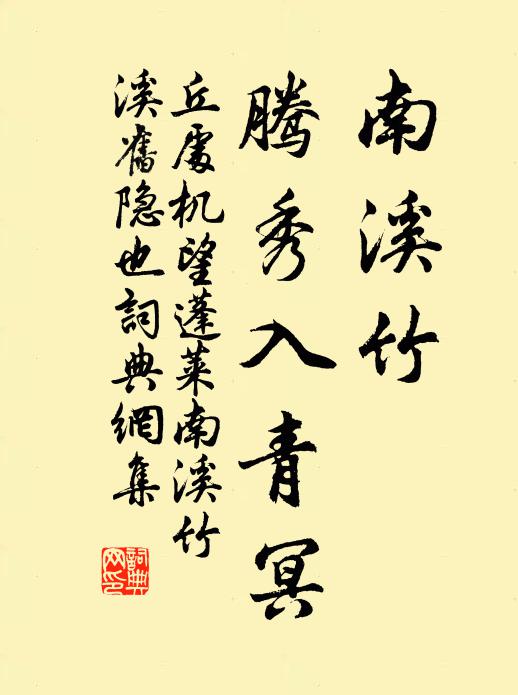 南溪竹
腾秀入青冥
丘處机望蓬莱南溪竹
溪舊隐也詞典網集
詞典網印